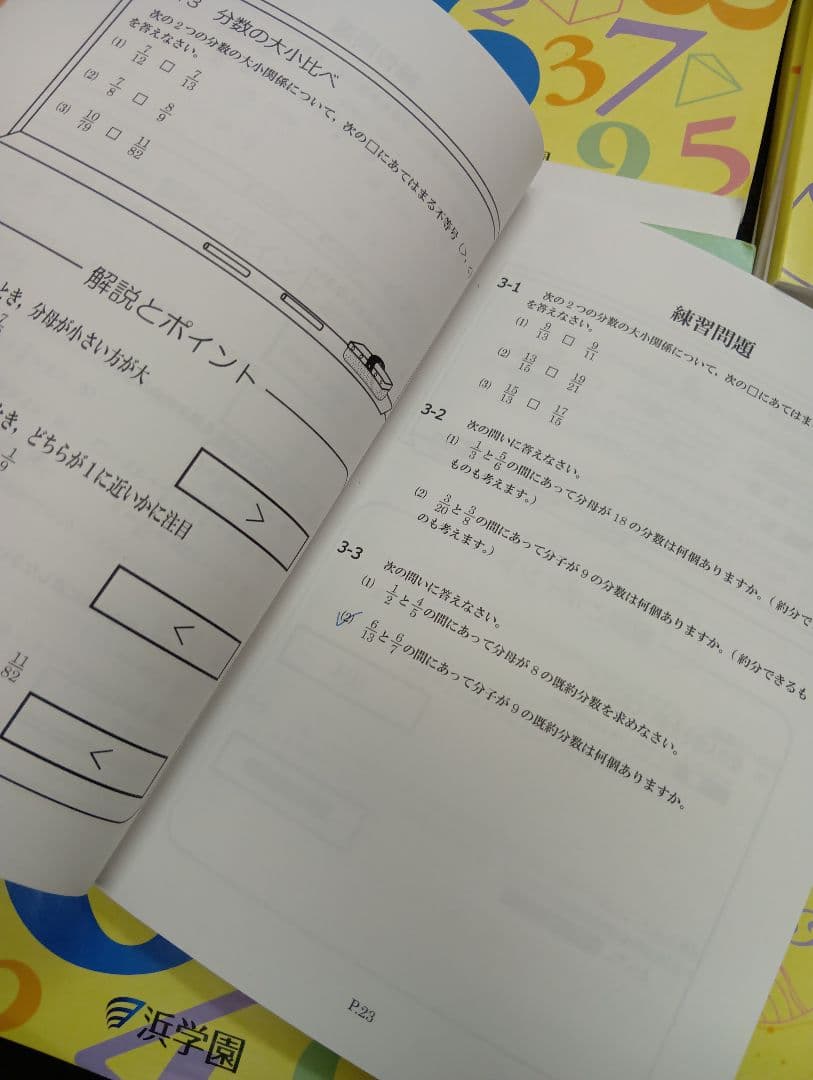 3 分数の大小比べ
次の2つの分数の大小関係について，次の□にあてはまる不等号（＞，
を答えなさい。
(1) 7/12 □ 7/13
(2) 7/8 □ 8/9
(3) 10/79 □ 11/82
解説とポイント
とき，分母が小さい方が大
き，どちらが1に近いかに注目
1/9
11/82
＞
＜
＜
練習問題
3-1 次の2つの分数の大小関係について，次の□にあてはま
を答えなさい。
(1) 9/13 □ 9/11
(2) 13/15 □ 19/21
(3) 15/13 □ 17/15
3-2 次の問いに答えなさい。
(1) 1/3と5/6の間にあって分母が18の分数は何個ありますか。（約分で
ものも考えます。）
(2) 3/20と3/8の間にあって分子が9の分数は何個ありますか。（約分できるも
のも考えます。）
3-3 次の問いに答えなさい。
(1) 1/2と4/5の間にあって分母が8の既約分数を求めなさい。
(2) 6/13と6/7の間にあって分子が9の既約分数は何個ありますか。
P.23
浜学園
3
7
9
5